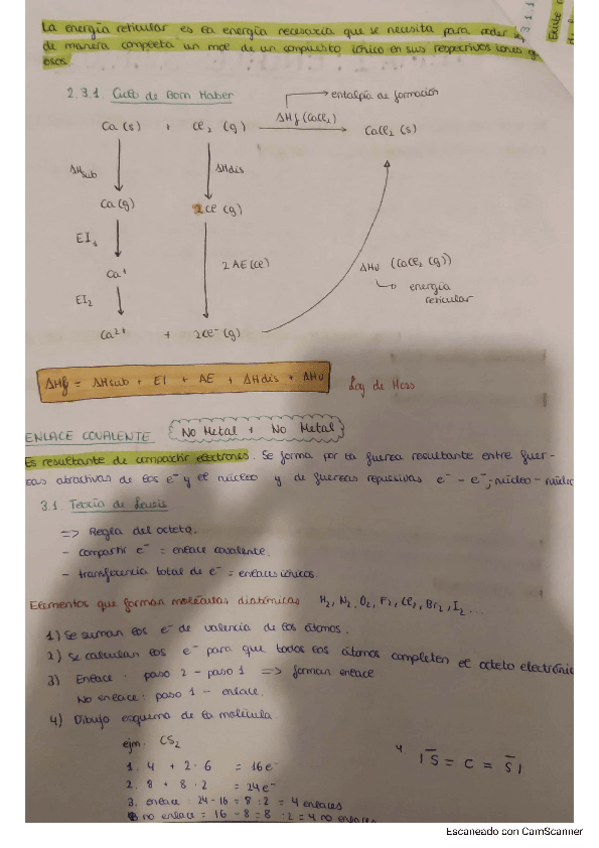 La energía reticular es la energía necesaria que se necesita para poder
de manera completa un mol de un compuesto iónico en sus respectivos iones
2.3.1. Ciclo de Born Haber
entalpía de formación
Ca (s) + Cl₂ (g) ΔHf (CaCl₂) CaCl₂ (s)
ΔHsub ΔHdis
Ca (g) 2Cl (g)
EI₁
2 AE (Cl) ΔHu (CaCl₂ (g))
Ca⁺ energía
EI₂ reticular
Ca²⁺ + 2Cl⁻ (g)
ΔHf = ΔHsub + EI + AE + ΔHdis + ΔHu Ley de Hess
ENLACE COVALENTE No Metal + No Metal
Es resultante de compartir electrones. Se forma por la fuerza resultante entre fuer-
zas atractivas de los e⁻ y el núcleo y de fuerzas repulsivas e⁻ - e⁻; núcleo - núcleo
3.1. Teoría de Lewis
=> Regla del octeto.
- compartir e⁻ = enlace covalente.
- transferencia total de e⁻ = enlaces iónicos.
Elementos que forman moléculas diatómicas H₂, N₂, O₂, F₂, Cl₂, Br₂, I₂ ...
1) Se suman los e⁻ de valencia de los átomos.
2) Se calculan los e⁻ para que todos los átomos completen el octeto electrónic
3) Enlace : paso 2 - paso 1 => forman enlace
No enlace: paso 1 - enlace.
4) Dibujo esquema de la molécula
ejm. CS₂
4 |S̅ = C = S̅|
1. 4 + 2·6 = 16e⁻
2. 8 + 8·2 = 24e⁻
3. enlace: 24-16 = 8 : 2 = 4 enlaces
no enlace = 16 - 8 = 8 : 2 = 4 no enlaces
Escaneado con CamScanner